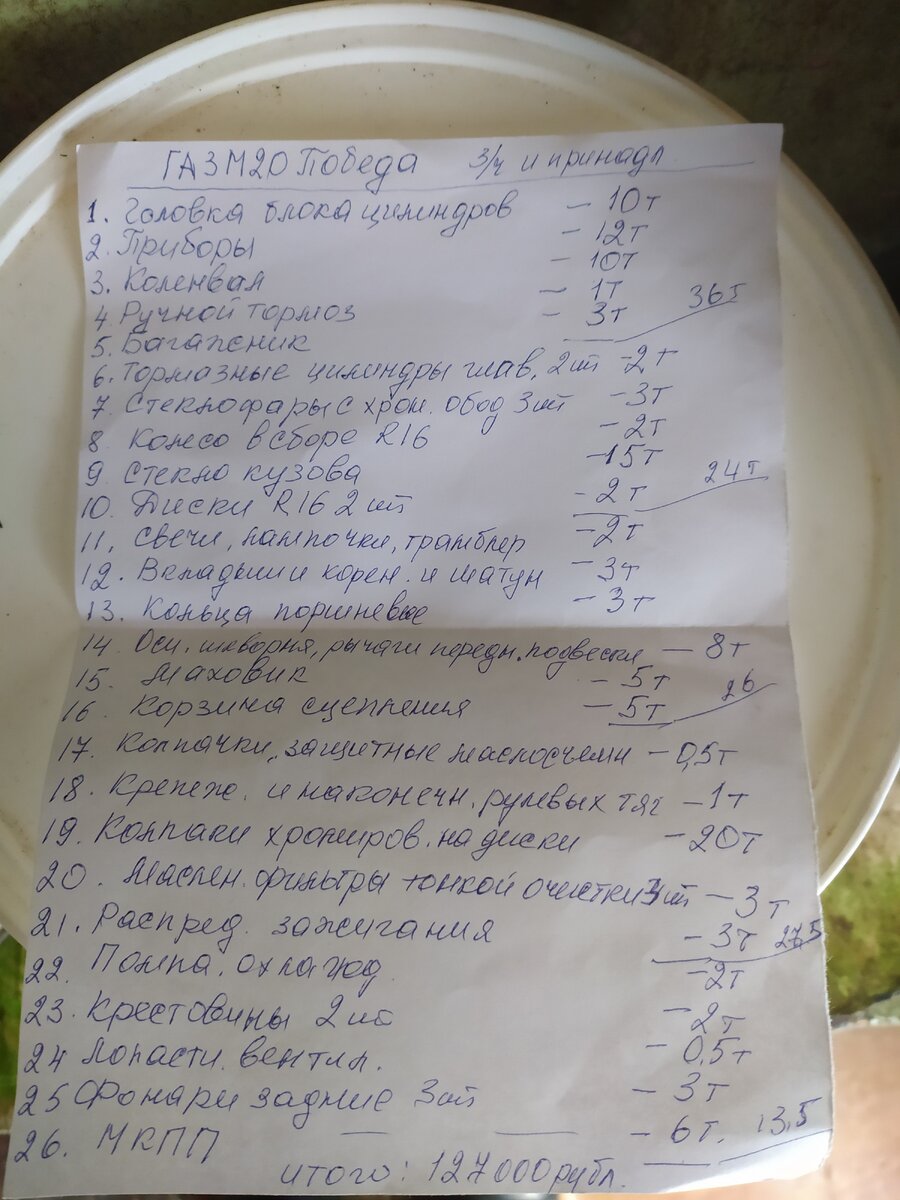 ГАЗ М20 Победа з/ч и принадл.
1. Головка блока цилиндров - 10т
2. Приборы - 12т
3. Коленвал - 10т
4 Ручной тормоз - 1т
5. Багажник - 3т 36т
6. Тормазные цилиндры глав, 2шт -2т
7. Стеклофары с хром. обод 3шт -3т
8. Колесо в сборе R16 -2т
9. Стекло кузова -15т
10. Диски R16 2шт -2т 24т
11, Свечи, лампочки, трамблер -2т
12. Вкладыши корен. и шатун -3т
13. Кольца поршневые -3т
14. Оси, шкворня, рычаги передн. подвески - 8т
15. Маховик -5т
16. Корзина сцепления -5т 26
17. Колпачки, защитные маслосъемн -0,5т
18. Крепеж. и наконечн. рулевых тяг -1т
19. Колпаки хромиров. на диски -20т
20. Маслен. фильтры тонкой очистки 3шт -3т
21. Распред. зажигания -3т 27,5
22. Помпа. охлажд. -2т
23. Крестовины 2шт -2т
24 Лопасти. вентил. - 0,5т
25 Фонари задние 3шт - 3т
26. МКПП - 6т. 13,5
итого: 127000рубл.